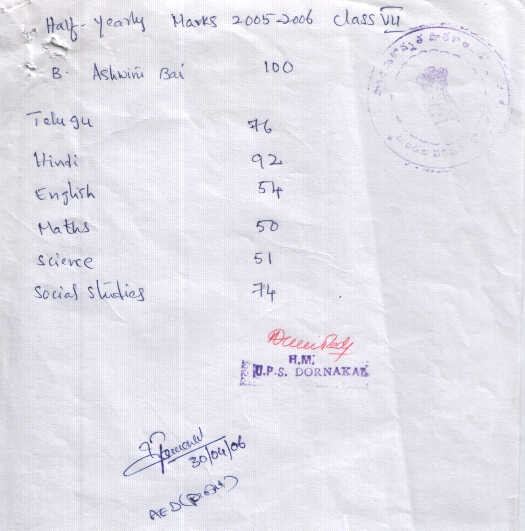 Half-yearly Marks 2005-2006 class VII
B. Ashwini Bai 100
Telugu 76
Hindi 92
English 54
Maths 50
Science 51
Social Studies 74
H.M.
U.P.S. DORNAKAL
30/04/06